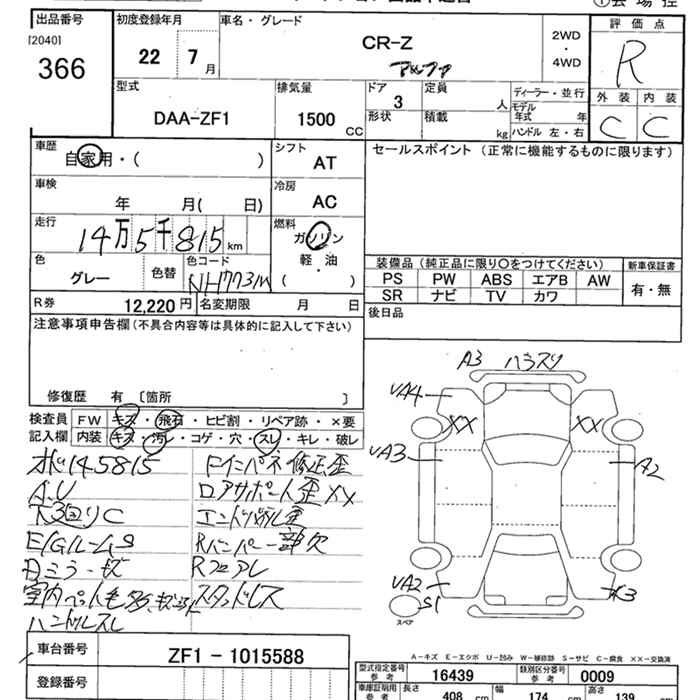 出品番号
[2040]
366
初度登録年月
22 7月
車名・グレード
CR-Z
アルファ
2WD
・
4WD
評価点
R
外装 内装
C C
型式
DAA-ZF1
排気量
1500
CC
ドア
3
形状
定員
人
積載
kg
ディーラー・並行
モデル年式 年
ハンドル 左・右
車歴
自家用・( )
シフト
AT
セールスポイント (正常に機能するものに限ります)
車検
年 月( 日)
冷房
AC
走行
14万5千815km
燃料
ガソリン
軽・油
( )
色
グレー
色替
色コード
NH773M
装備品 (純正品に限り〇をつけてください)
PS PW ABS エアB AW
SR ナビ TV カワ
新車保証書
有・無
R券 12,220円
名変期限 月 日
後日品
注意事項申告欄(不具合内容等は具体的に記入して下さい)
修復歴 有 〔箇所 〕
検査員 FW キズ・飛石・ヒビ割・リペア跡・×要
記入欄 内装 キズ・汚レ・コゲ・穴・スレ・キレ・破レ
145815
A.U
下回りC
E/GルームS
室内ペット毛多
ハンドルスレ
Fインパネ修正歪
ロアサポート歪XX
エンドパネル歪
Rバンパー一部欠
Rフロアレ
スタッドレス
A3
UA4
XX
XX
UA3
A2
UA2
S1
スペア
A-キズ E-エクボ U-凹み W-補修跡 S-サビ C-腐食 ××-交換済
車台番号
ZF1 - 1015588
登録番号
型式指定番号
参考
16439
類別区分番号
参考
0009
車庫証明用
参考
長さ
408 cm
幅
174 cm
高さ
139 cm